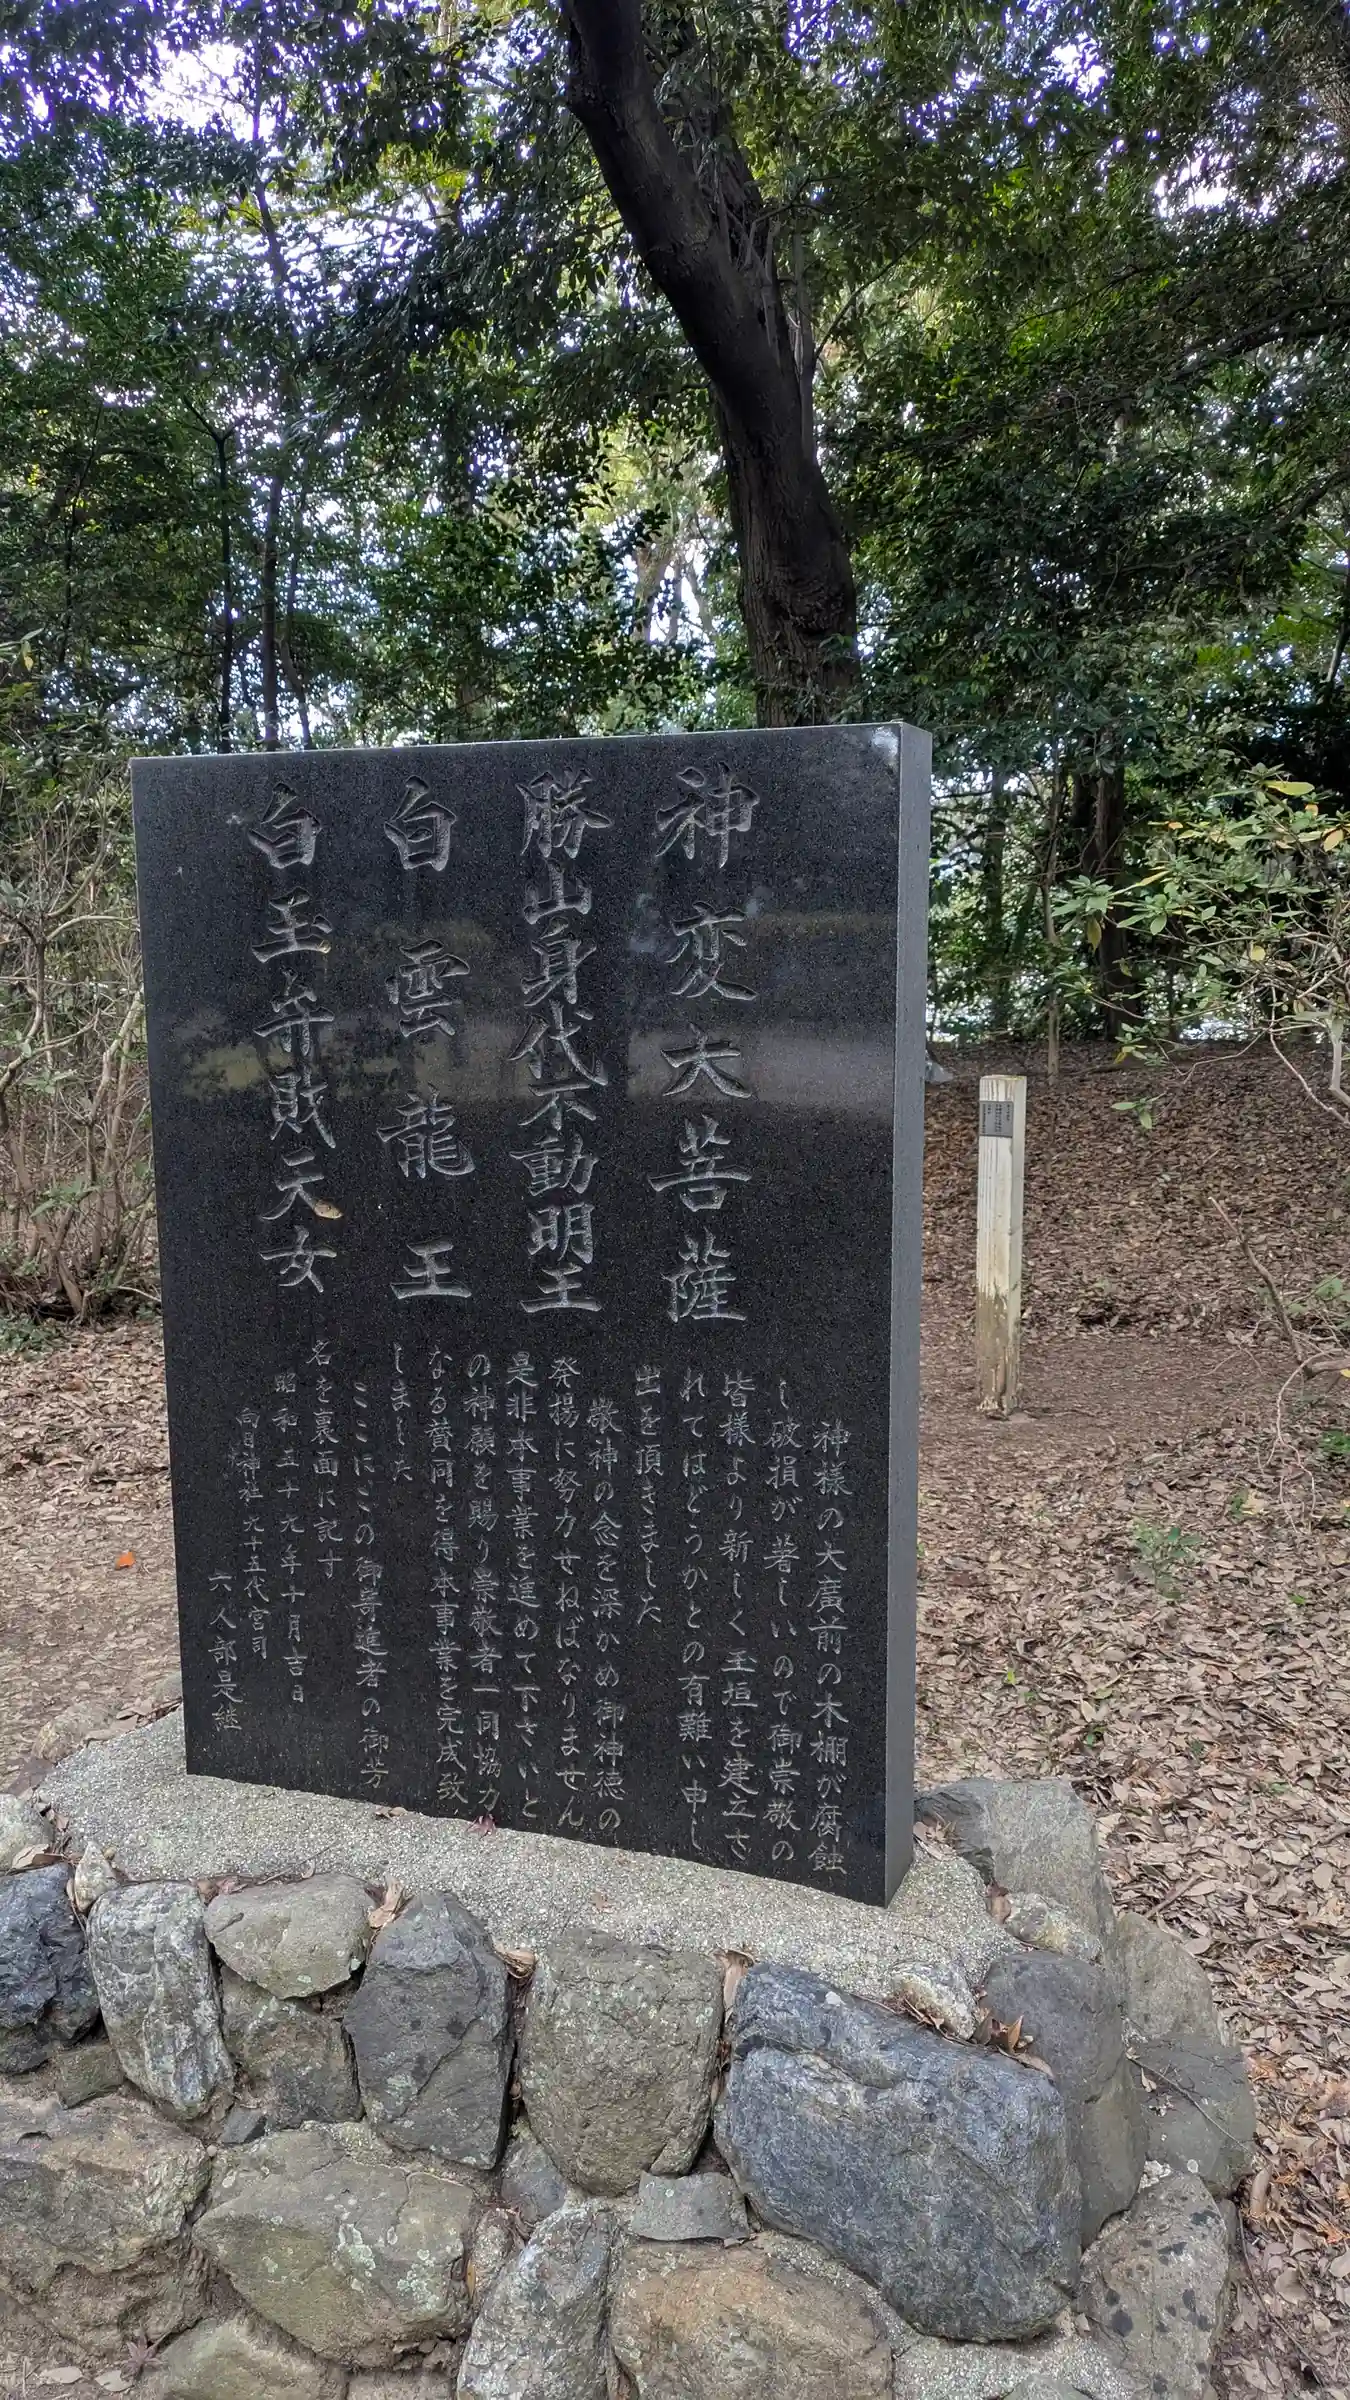 神変大菩薩
勝山身代不動明王
白雲龍王
白玉弁財天女
神様の大廣前の木棚が腐蝕
し破損が著しいので御崇敬の
皆様より新しく玉垣を建立さ
れてはどうかとの有難い申し
出を頂きました
敬神の念を深かめ御神徳の
発揚に努力せねばなりません
是非本事業を進めて下さいと
の神願を賜り崇敬者一同協力
なる賛同を得本事業を完成致
しました
ここにこの御寄進者の御芳
名を裏面に記す
昭和五十九年十月吉日
向日神社九十五代宮司
六人部是継